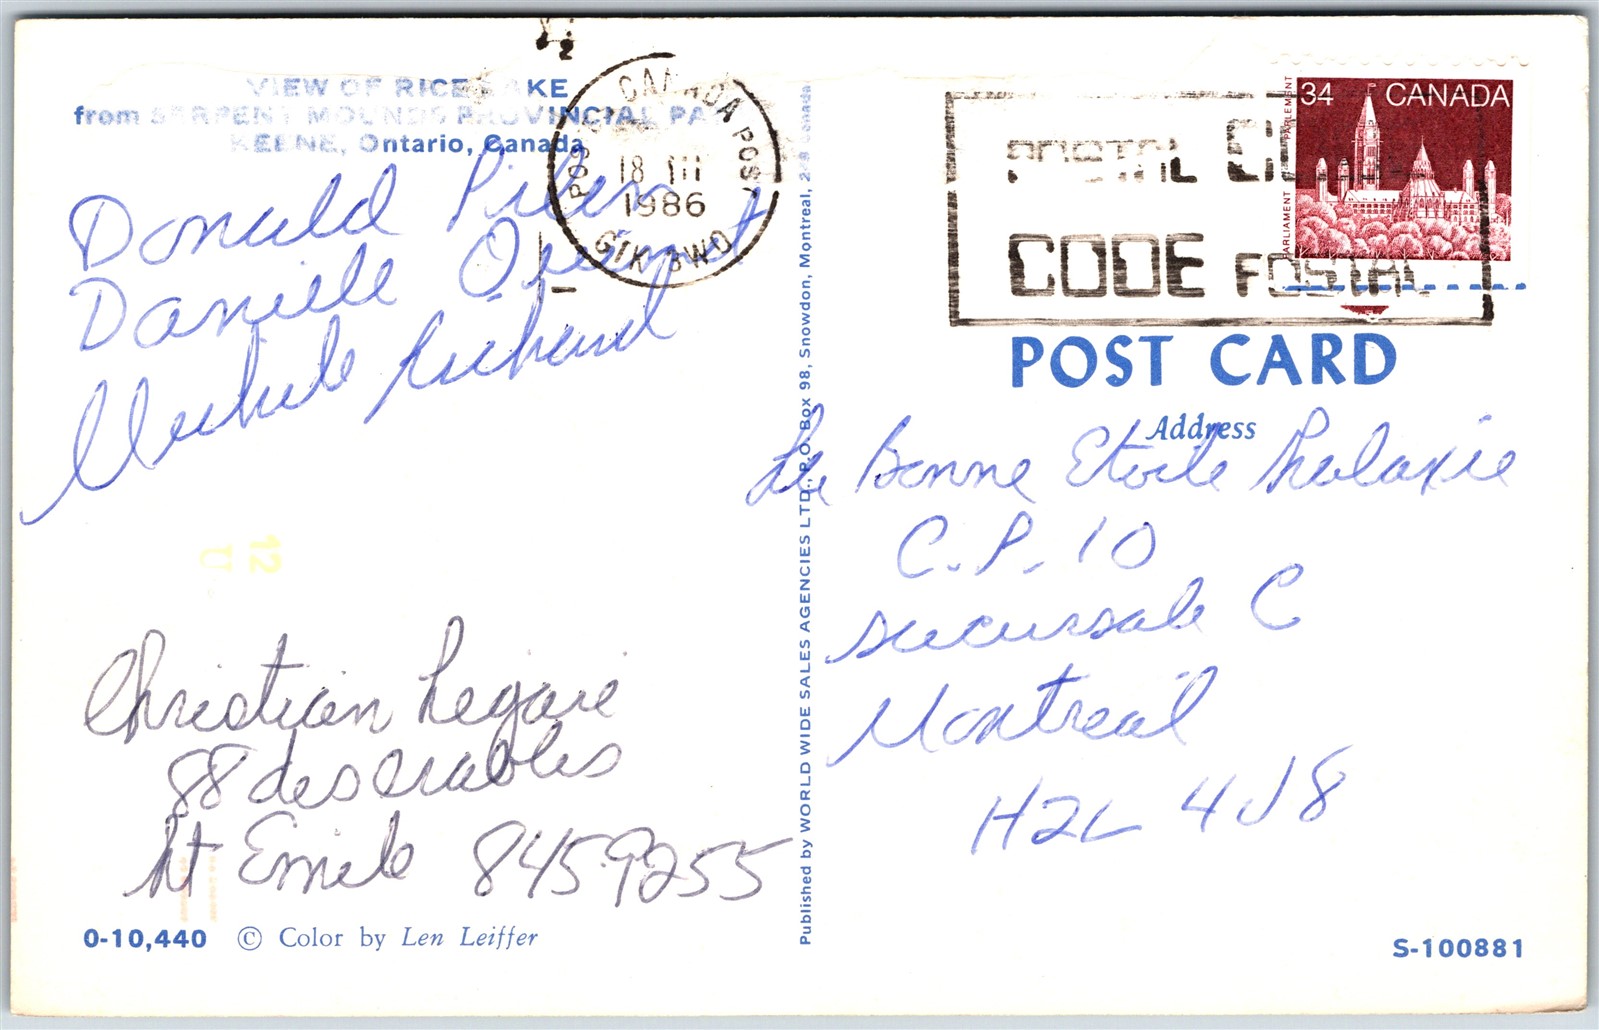 VIEW OF RICE LAKE
from SERPENT MOUNDS PROVINCIAL PA
KEENE, Ontario, Canada
Donald
Danielle Ouimet
Michele Richard
Christian Legare
88 des erables
St Emile 8459255
0-10,440 © Color by Len Leiffer
Published by WORLD WIDE SALES AGENCIES LTD., P.O. Box 98, Snowdon, Montreal, 248 Canada
CANADA
POST
18 III
1986
POSTAL
CODE POSTAL
34 CANADA
PARLIAMENT PARLEMENT
POST CARD
Address
La Bonne Etoile Malaxie
C.P. 10
succursale C
Montreal
H2L 4J8
S-100881